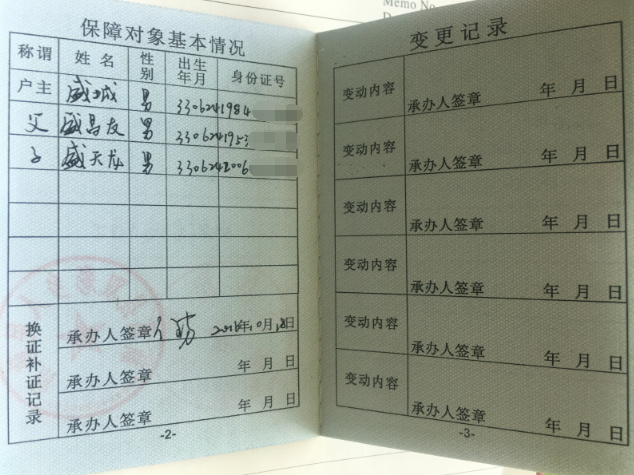 Memo No
保障对象基本情况
称谓 姓名 性别 出生年月 身份证号
户主 男 3306241984
父 男 3306241953
子 男 3306242006
换证补证记录
承办人签章 10月18日
承办人签章 年 月 日
承办人签章 年 月 日
-2-
变更记录
变动内容 承办人签章 年 月 日
变动内容 承办人签章 年 月 日
变动内容 承办人签章 年 月 日
变动内容 承办人签章 年 月 日
变动内容 承办人签章 年 月 日
变动内容 承办人签章 年 月 日
-3-